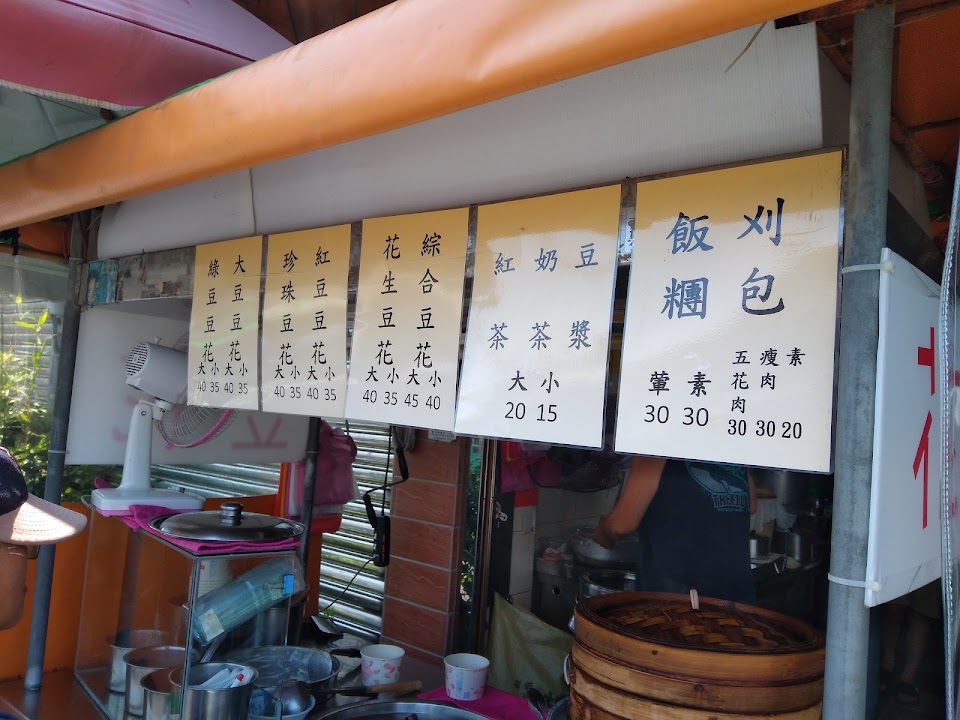 刈包
五花肉 30
瘦肉 30
素 20
飯糰
葷 30
素 30
豆漿
奶茶
紅茶
大 20
小 15
綜合豆花
大 45
小 40
花生豆花
大 40
小 35
紅豆豆花
大 40
小 35
珍珠豆花
大 40
小 35
大豆豆花
大 40
小 35
綠豆豆花
大 40
小 35